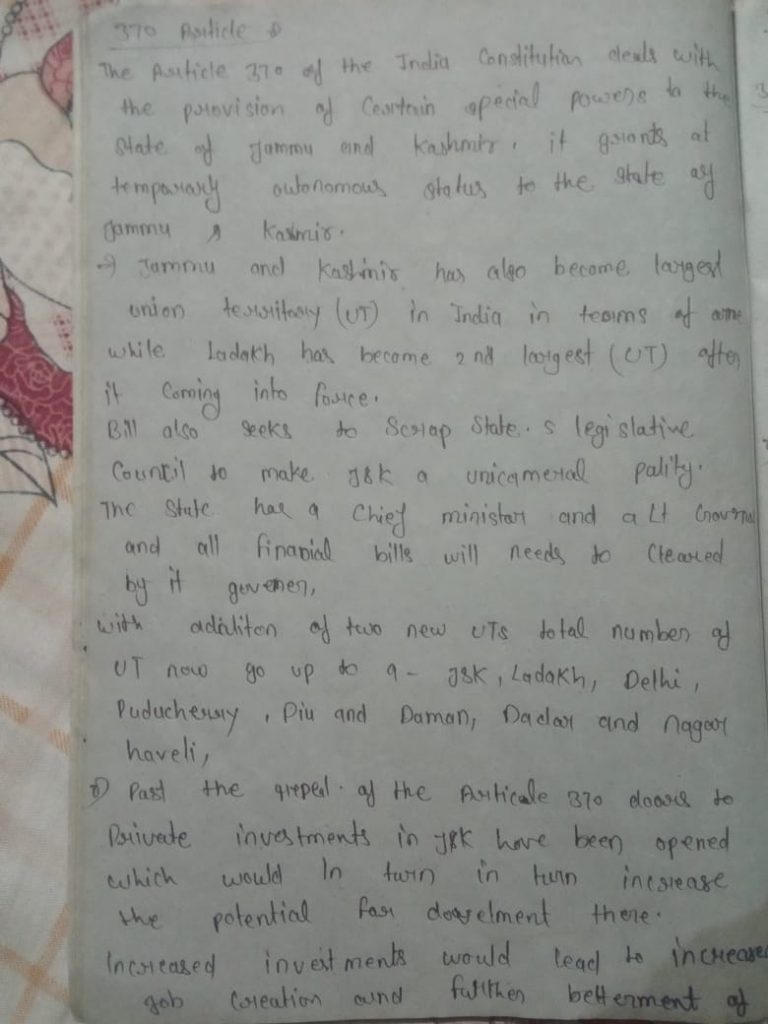 370 Article
The Article 370 of the India Constitution deals with
the provision of Certain special powers to the
State of Jammu and Kashmir. it grants at
temparary autonomous status to the state of
Jammu & Kasmir.
→ Jammu and Kashmir has also become largest
union territory (UT) in India in terms of
while Ladakh has become 2nd largest (UT) after
it Coming into force.
Bill also seeks to Scrap State. s legislative
Council to make J&K a unicameral pality.
The State has a Chief ministar and a Lt
and all finanial bills will needs to Cleared
by it
with of two new UTs total number of
UT now go up to 9 - J&K, Ladakh, Delhi,
Puducherry, Diu and Daman, Dadar and nagar
haveli,
Past the of the 370 to
Private investments in J&K have been opened
which would In turn in turn increase
the potential far there.
Increased investments would lead to increase
job Creation and further betterment of